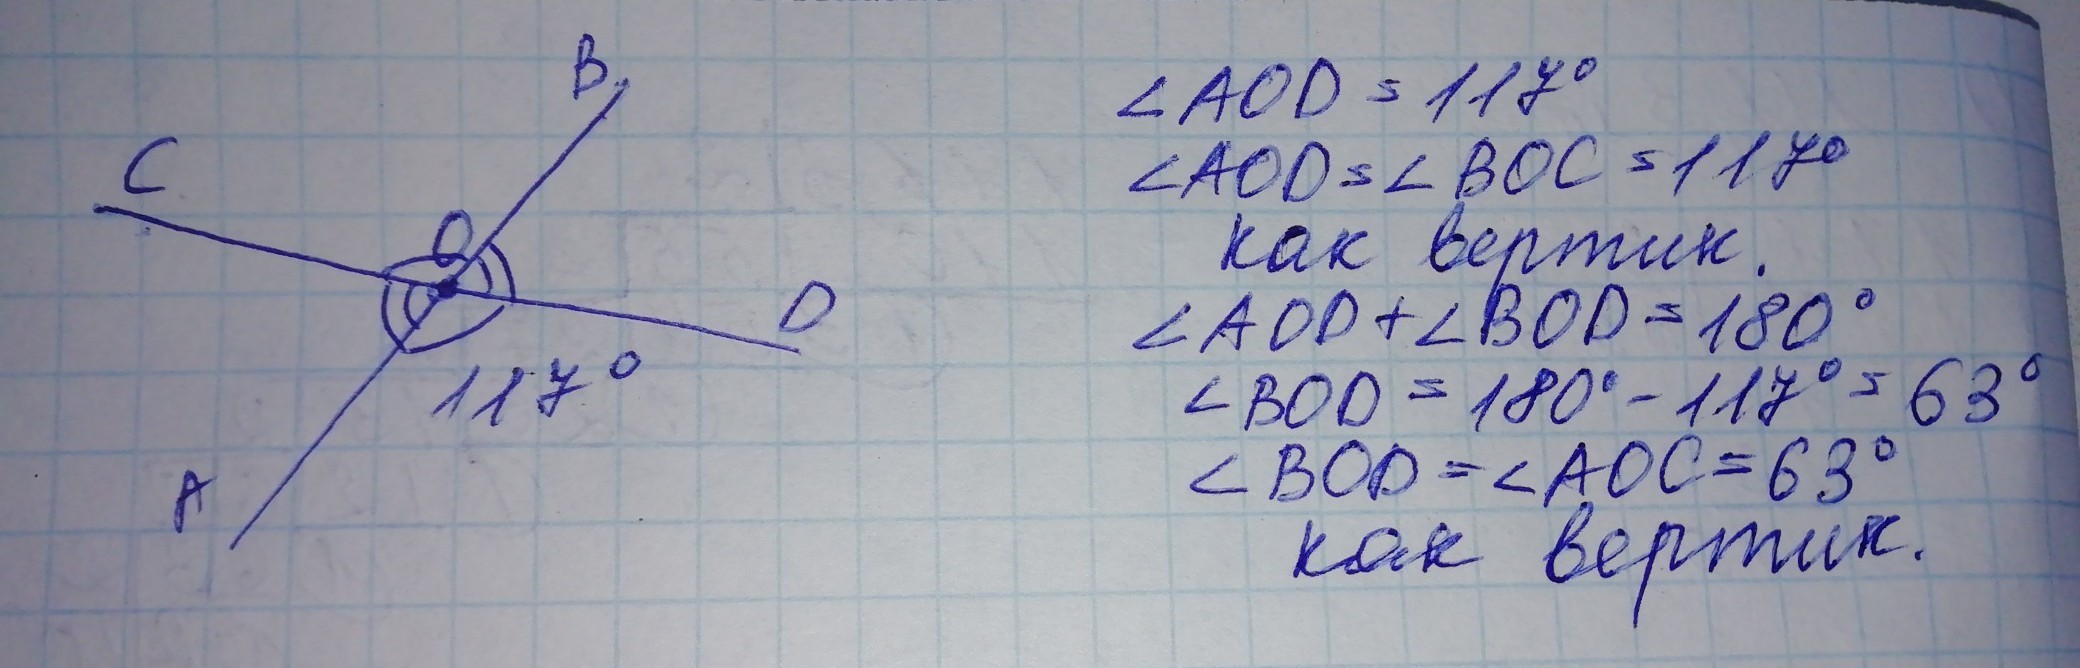 B
C
O
D
117°
A
∠AOD = 117°
∠AOD = ∠BOC = 117°
как вертик.
∠AOD + ∠BOD = 180°
∠BOD = 180° - 117° = 63°
∠BOD = ∠AOC = 63°
как вертик.